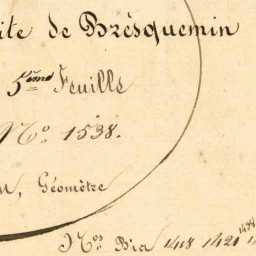 ite de Brèsquemin
5ème Feuille
No. 1538.
, Géomètre
Nos 1418 1421